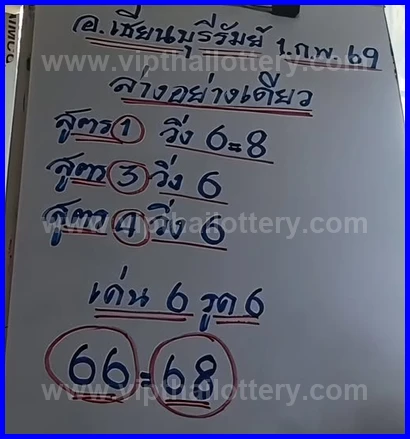 อ.เซียนบุรีรัมย์ 1.ก.พ. 69
www.vipthailottery.com
ล่างอย่างเดียว
สูตร 1 วิ่ง 6=8
สูตร 3 วิ่ง 6
สูตร 4 วิ่ง 6
www.vipthailottery.com
เด่น 6 รูด 6
66=68
www.vipthailottery.com